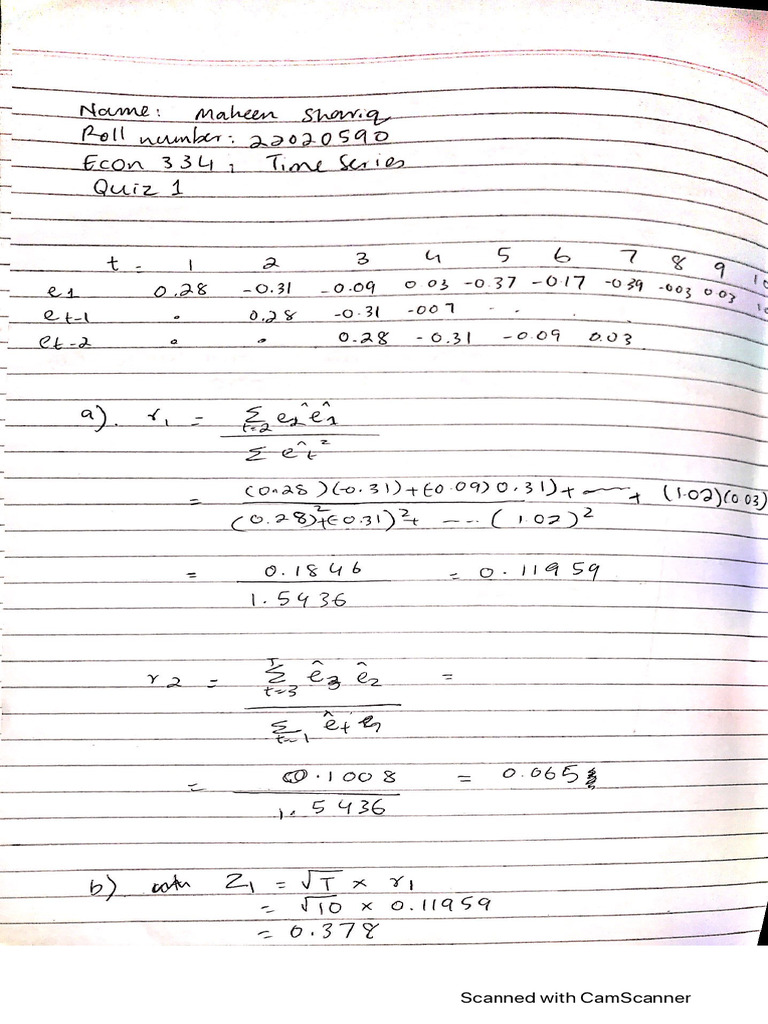 Name: Maheen Shariq
Roll number: 22020590
Econ 334; Time Series
Quiz 1
t = 1 2 3 4 5 6 7 8 9 10
e1 0.28 -0.31 -0.09 0.03 -0.37 -0.17 -0.39 -0.03 0.03
et-1 . 0.28 -0.31 -007 . .
et-2 . . 0.28 -0.31 -0.09 0.03
a). r1 = Σt=2 ê2 ê1 / Σ êt²
= (0.28)(-0.31)+(-0.09)0.31)+ ---- + (1.02)(0.03) / (0.28)²+(-0.31)²+ ---- (1.02)²
= 0.1846 / 1.5436 = 0.11959
r2 = Σt=3 ê3 ê2 / Σt=1 êt =
= 0.1008 / 1.5436 = 0.065
b) Z1 = √T × r1
= √10 × 0.11959
= 0.378
Scanned with CamScanner